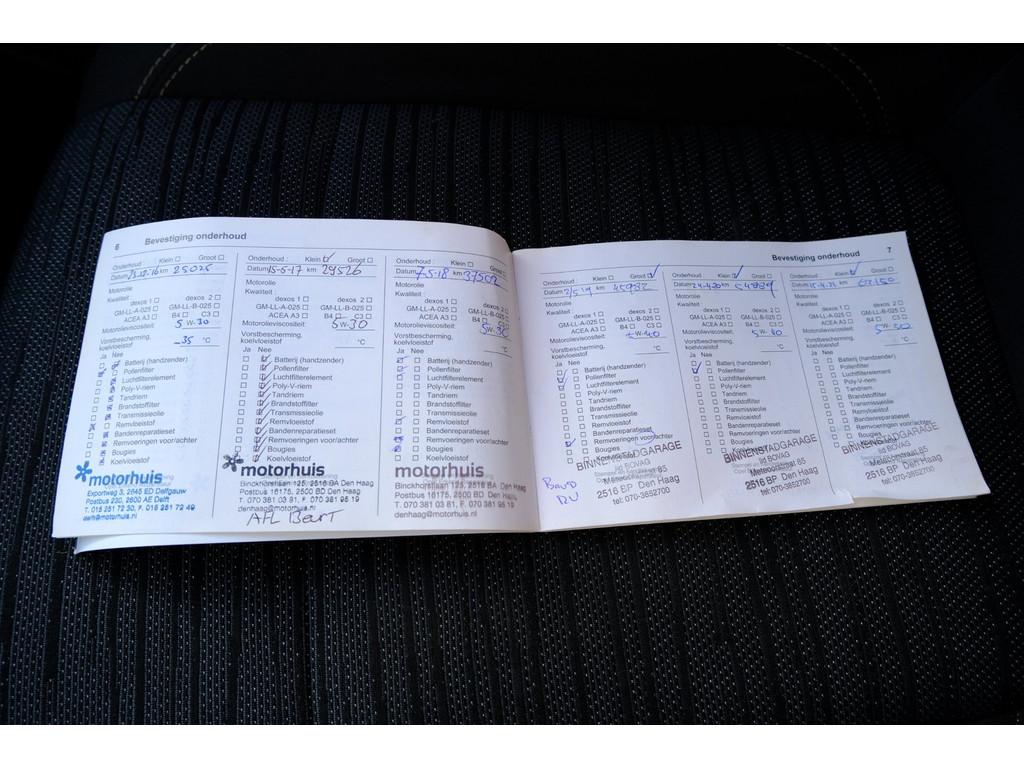 6
Bevestiging onderhoud
Onderhoud : Klein ☐ Groot ☐
Datum km 25025
Motorolie
Kwaliteit :
dexos 1 ☐ dexos 2 ☐
GM-LL-A-025 ☐ GM-LL-B-025 ☐
ACEA A3 ☐ B4 ☐ C3 ☐
Motorolieviscositeit: 5 W-30
Vorstbescherming,
koelvloeistof -35 °C
Ja Nee
Batterij (handzender)
Pollenfilter
Luchtfilterelement
Poly-V-riem
Tandriem
Brandstoffilter
Transmissieolie
Remvloeistof
Bandenreparatieset
Remvoeringen voor/achter
Bougies
Koelvloeistof
motorhuis
Exportweg 3, 2645 ED Delfgauw
Postbus 230, 2600 AE Delft
T. 015 251 72 30, F. 015 251 72 49
delft@motorhuis.nl
Onderhoud : Klein ☑ Groot ☐
Datum 15-5-17 km 29526
Motorolie
Kwaliteit :
dexos 1 ☐ dexos 2 ☐
GM-LL-A-025 ☐ GM-LL-B-025 ☐
ACEA A3 ☐ B4 ☐ C3 ☐
Motorolieviscositeit: 5W-30
Vorstbescherming,
koelvloeistof °C
Ja Nee
Batterij (handzender)
Pollenfilter
Luchtfilterelement
Poly-V-riem
Tandriem
Brandstoffilter
Transmissieolie
Remvloeistof
Bandenreparatieset
Remvoeringen voor/achter
Bougies
Koelvloeistof
motorhuis
Binckhorstlaan 125, 2516 BA Den Haag
Postbus 16175, 2500 BD Den Haag
T. 070 381 03 81, F. 070 381 95 19
denhaag@motorhuis.nl
AFL Beurt
Onderhoud : Klein ☐ Groot ☐
Datum 7-5-18 km 37502
Motorolie
Kwaliteit :
dexos 1 ☐ dexos 2 ☐
GM-LL-A-025 ☐ GM-LL-B-025 ☐
ACEA A3 ☐ B4 ☐ C3 ☐
Motorolieviscositeit: 5W-30
Vorstbescherming,
koelvloeistof °C
Ja Nee
Batterij (handzender)
Pollenfilter
Luchtfilterelement
Poly-V-riem
Tandriem
Brandstoffilter
Transmissieolie
Remvloeistof
Bandenreparatieset
Remvoeringen voor/achter
Bougies
Koelvloeistof
motorhuis
Binckhorstlaan 125, 2516 BA Den Haag
Postbus 16175, 2500 BD Den Haag
T. 070 381 03 81, F. 070 381 95 19
denhaag@motorhuis.nl
7
Bevestiging onderhoud
Onderhoud : Klein ☐ Groot ☑
Datum km 45982
Motorolie
Kwaliteit :
dexos 1 ☐ dexos 2 ☐
GM-LL-A-025 ☐ GM-LL-B-025 ☐
ACEA A3 ☐ B4 ☐ C3 ☐
Motorolieviscositeit: W-40
Vorstbescherming,
koelvloeistof °C
Ja Nee
Batterij (handzender)
Pollenfilter
Luchtfilterelement
Poly-V-riem
Tandriem
Brandstoffilter
Transmissieolie
Remvloeistof
Bandenreparatieset
Remvoeringen voor/achter
Bougies
BINNENSTADGARAGE
lid BOVAG
Meteoorstraat 85
2516 BP Den Haag
tel: 070-3852700
Onderhoud : Klein ☑ Groot ☐
Datum km
Motorolie
Kwaliteit :
dexos 1 ☐ dexos 2 ☐
GM-LL-A-025 ☐ GM-LL-B-025 ☐
ACEA A3 ☐ B4 ☐ C3 ☐
Motorolieviscositeit: 5W-30
Vorstbescherming,
koelvloeistof °C
Ja Nee
Batterij (handzender)
Pollenfilter
Luchtfilterelement
Poly-V-riem
Tandriem
Brandstoffilter
Transmissieolie
Remvloeistof
Bandenreparatieset
Remvoeringen voor/achter
Bougies
BINNENSTADGARAGE
lid BOVAG
Meteoorstraat 85
2516 BP Den Haag
tel: 070-3852700
Onderhoud : Klein ☑ Groot ☐
Datum km 62150
Motorolie
Kwaliteit :
dexos 1 ☐ dexos 2 ☐
GM-LL-A-025 ☐ GM-LL-B-025 ☐
ACEA A3 ☐ B4 ☐ C3 ☐
Motorolieviscositeit: 5W
Vorstbescherming,
koelvloeistof °C
Ja Nee
Batterij (handzender)
Pollenfilter
Luchtfilterelement
Poly-V-riem
Tandriem
Brandstoffilter
Transmissieolie
Remvloeistof
Bandenreparatieset
Remvoeringen voor/achter
Bougies
BINNENSTADGARAGE
lid BOVAG
Meteoorstraat 85
2516 BP Den Haag
tel: 070-3852700